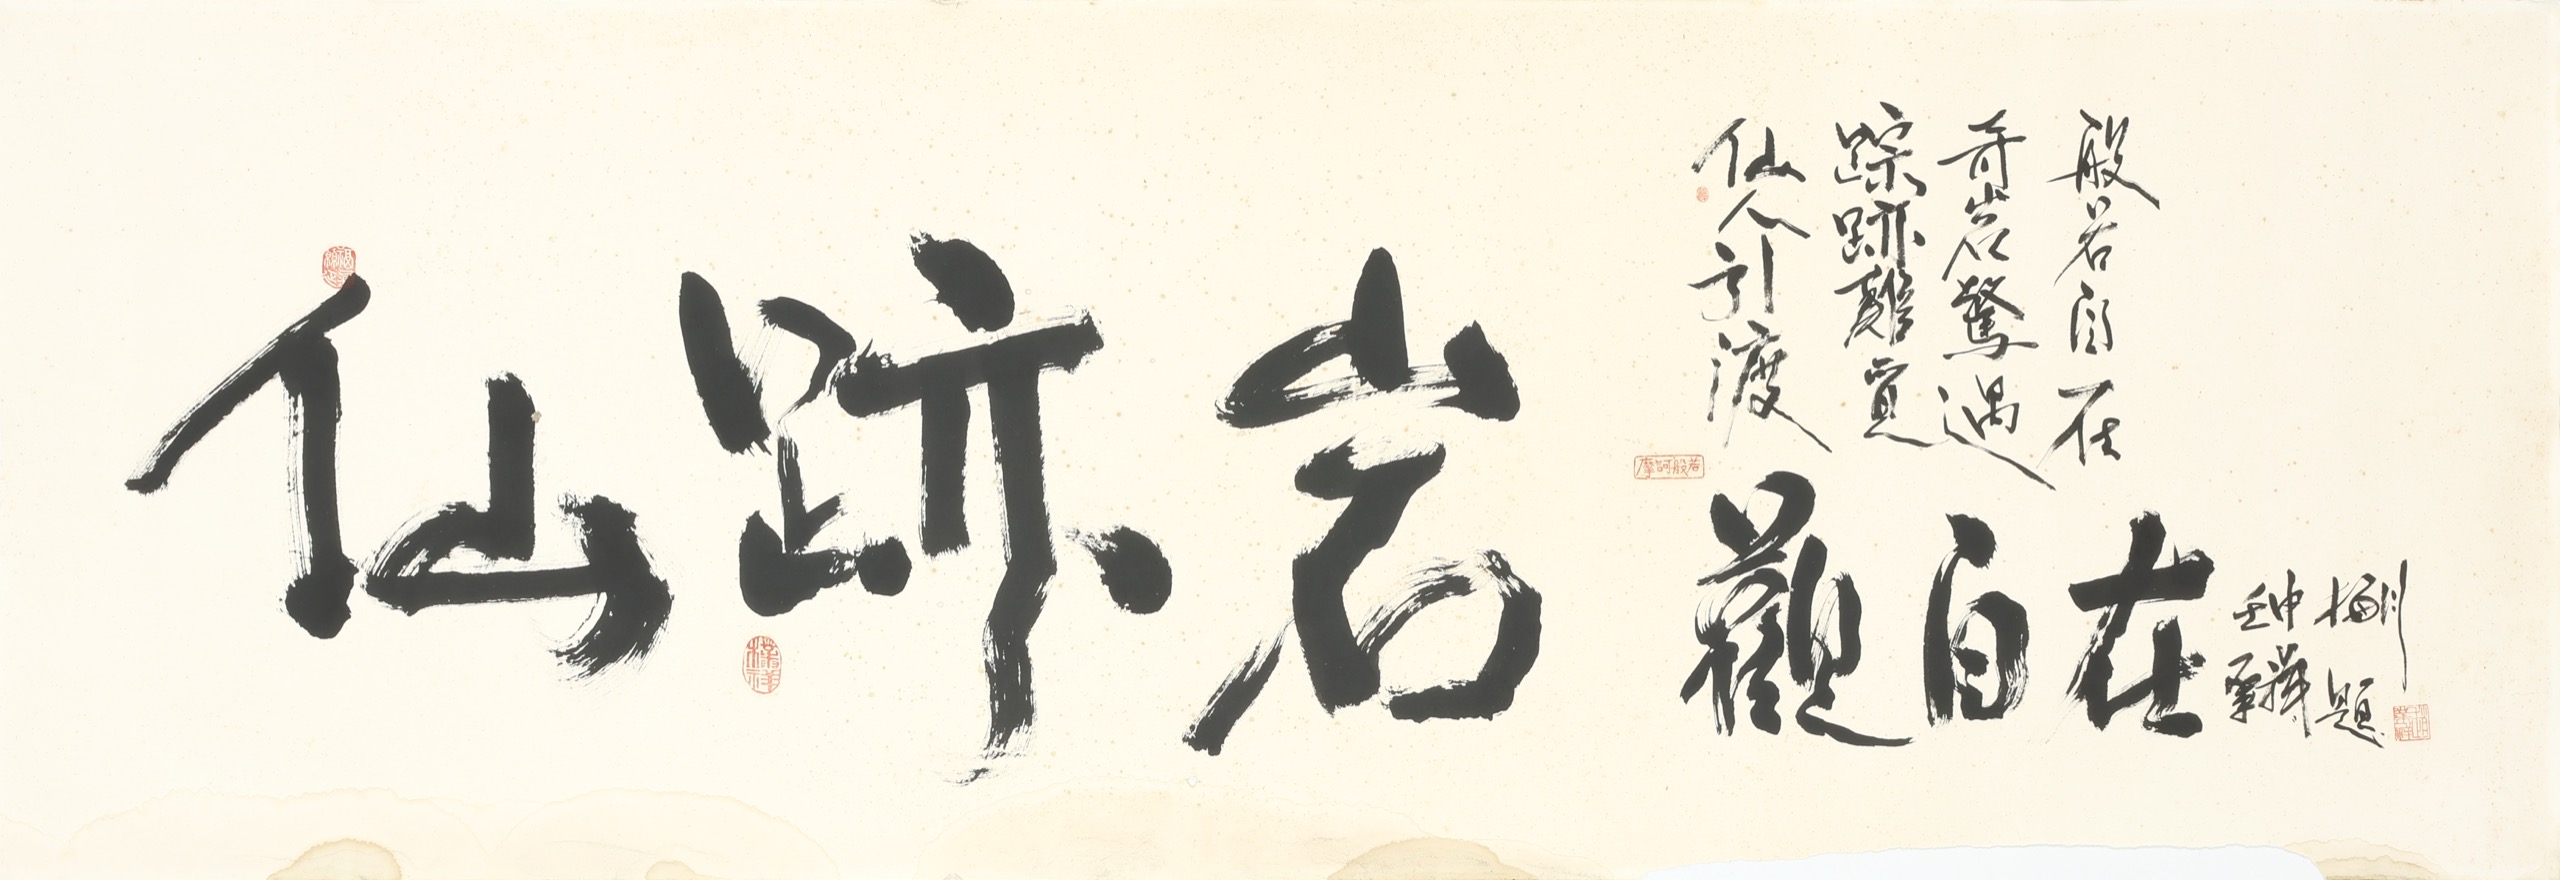 仙跡岩
仙人引渡
踪跡難覓
奇岩驚遇
般若自在
摩訶般若
觀自在
壬申
題